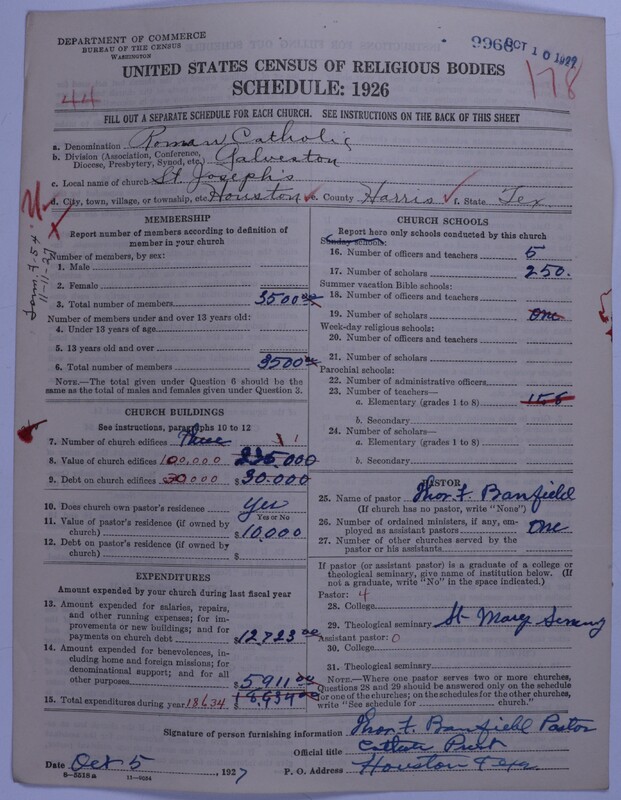 DEPARTMENT OF COMMERCE
BUREAU OF THE CENSUS
WASHINGTON
9968 OCT 10 1927
178
UNITED STATES CENSUS OF RELIGIOUS BODIES
SCHEDULE: 1926
44
FILL OUT A SEPARATE SCHEDULE FOR EACH CHURCH. SEE INSTRUCTIONS ON THE BACK OF THIS SHEET
a. Denomination Roman Catholic
b. Division (Association, Conference, Diocese, Presbytery, Synod, etc.) Galveston
c. Local name of church St. Joseph's
d. City, town, village, or township, etc. Houston e. County Harris f. State Tex
MEMBERSHIP
Report number of members according to definition of
member in your church
Number of members, by sex:
1. Male
2. Female
3. Total number of members 3500 00
Number of members under and over 13 years old:
4. Under 13 years of age
5. 13 years old and over
6. Total number of members 3500 00
NOTE.—The total given under Question 6 should be the
same as the total of males and females given under Question 3.
11-11-27
CHURCH BUILDINGS
See instructions, paragraphs 10 to 12
7. Number of church edifices Three 1
8. Value of church edifices 100,000 $ 235.000
9. Debt on church edifices 30000 $ 30.000
10. Does church own pastor's residence Yes
Yes or No
11. Value of pastor's residence (if owned by
church) $ 10,000
12. Debt on pastor's residence (if owned by
church) $
EXPENDITURES
Amount expended by your church during last fiscal year
13. Amount expended for salaries, repairs,
and other running expenses; for im-
provements or new buildings; and for
payments on church debt $ 12,723 00
14. Amount expended for benevolences, in-
cluding home and foreign missions; for
denominational support; and for all
other purposes $ 5911 00
15. Total expenditures during year 18634 $ 18,634 00
CHURCH SCHOOLS
Report here only schools conducted by this church
Sunday schools:
16. Number of officers and teachers 5
17. Number of scholars 250.
Summer vacation Bible schools:
18. Number of officers and teachers
19. Number of scholars one
Week-day religious schools:
20. Number of officers and teachers
21. Number of scholars
Parochial schools:
22. Number of administrative officers
23. Number of teachers—
a. Elementary (grades 1 to 8) 156
b. Secondary
24. Number of scholars—
a. Elementary (grades 1 to 8)
b. Secondary
PASTOR
25. Name of pastor Thos. F. Banfield
(If church has no pastor, write "None")
26. Number of ordained ministers, if any, em-
ployed as assistant pastors One
27. Number of other churches served by the
pastor or his assistants
If pastor (or assistant pastor) is a graduate of a college or
theological seminary, give name of institution below. (If
not a graduate, write "No" in the space indicated.)
Pastor: 4
28. College
29. Theological seminary St. Mary
Assistant pastor: 0
30. College
31. Theological seminary
NOTE.—Where one pastor serves two or more churches,
Questions 28 and 29 should be answered only on the schedule
for one of the churches; on the schedules for the other churches,
write "See schedule for church."
Signature of person furnishing information Thos. F. Banfield Pastor
Official title Catholic Priest
Date Oct 5, 1927 P. O. Address Houston Texas
8-5518a 11-9034